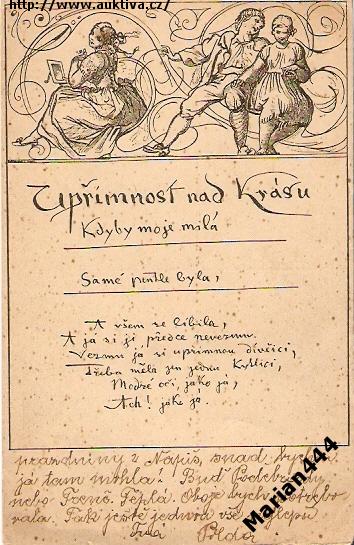 http://www.auktiva.cz/
Upřímnost nad Krásu
Kdyby moje milá
Samé pentle byla,
A všem se líbila,
A já si jí předce nevezmu.
Vezmu já si upřímnou dívčici,
Třeba měla jen jednu Kytlici,
Modré oči, jako já,
Ach! jako já.
prázdniny z Napiš, snad bych
já tam mohla. Buď Poděbrady
nebo Těžká. Oboje bych potřebo
vala. Tak ještě jednou vše nejlepší
Tvá
Marian444